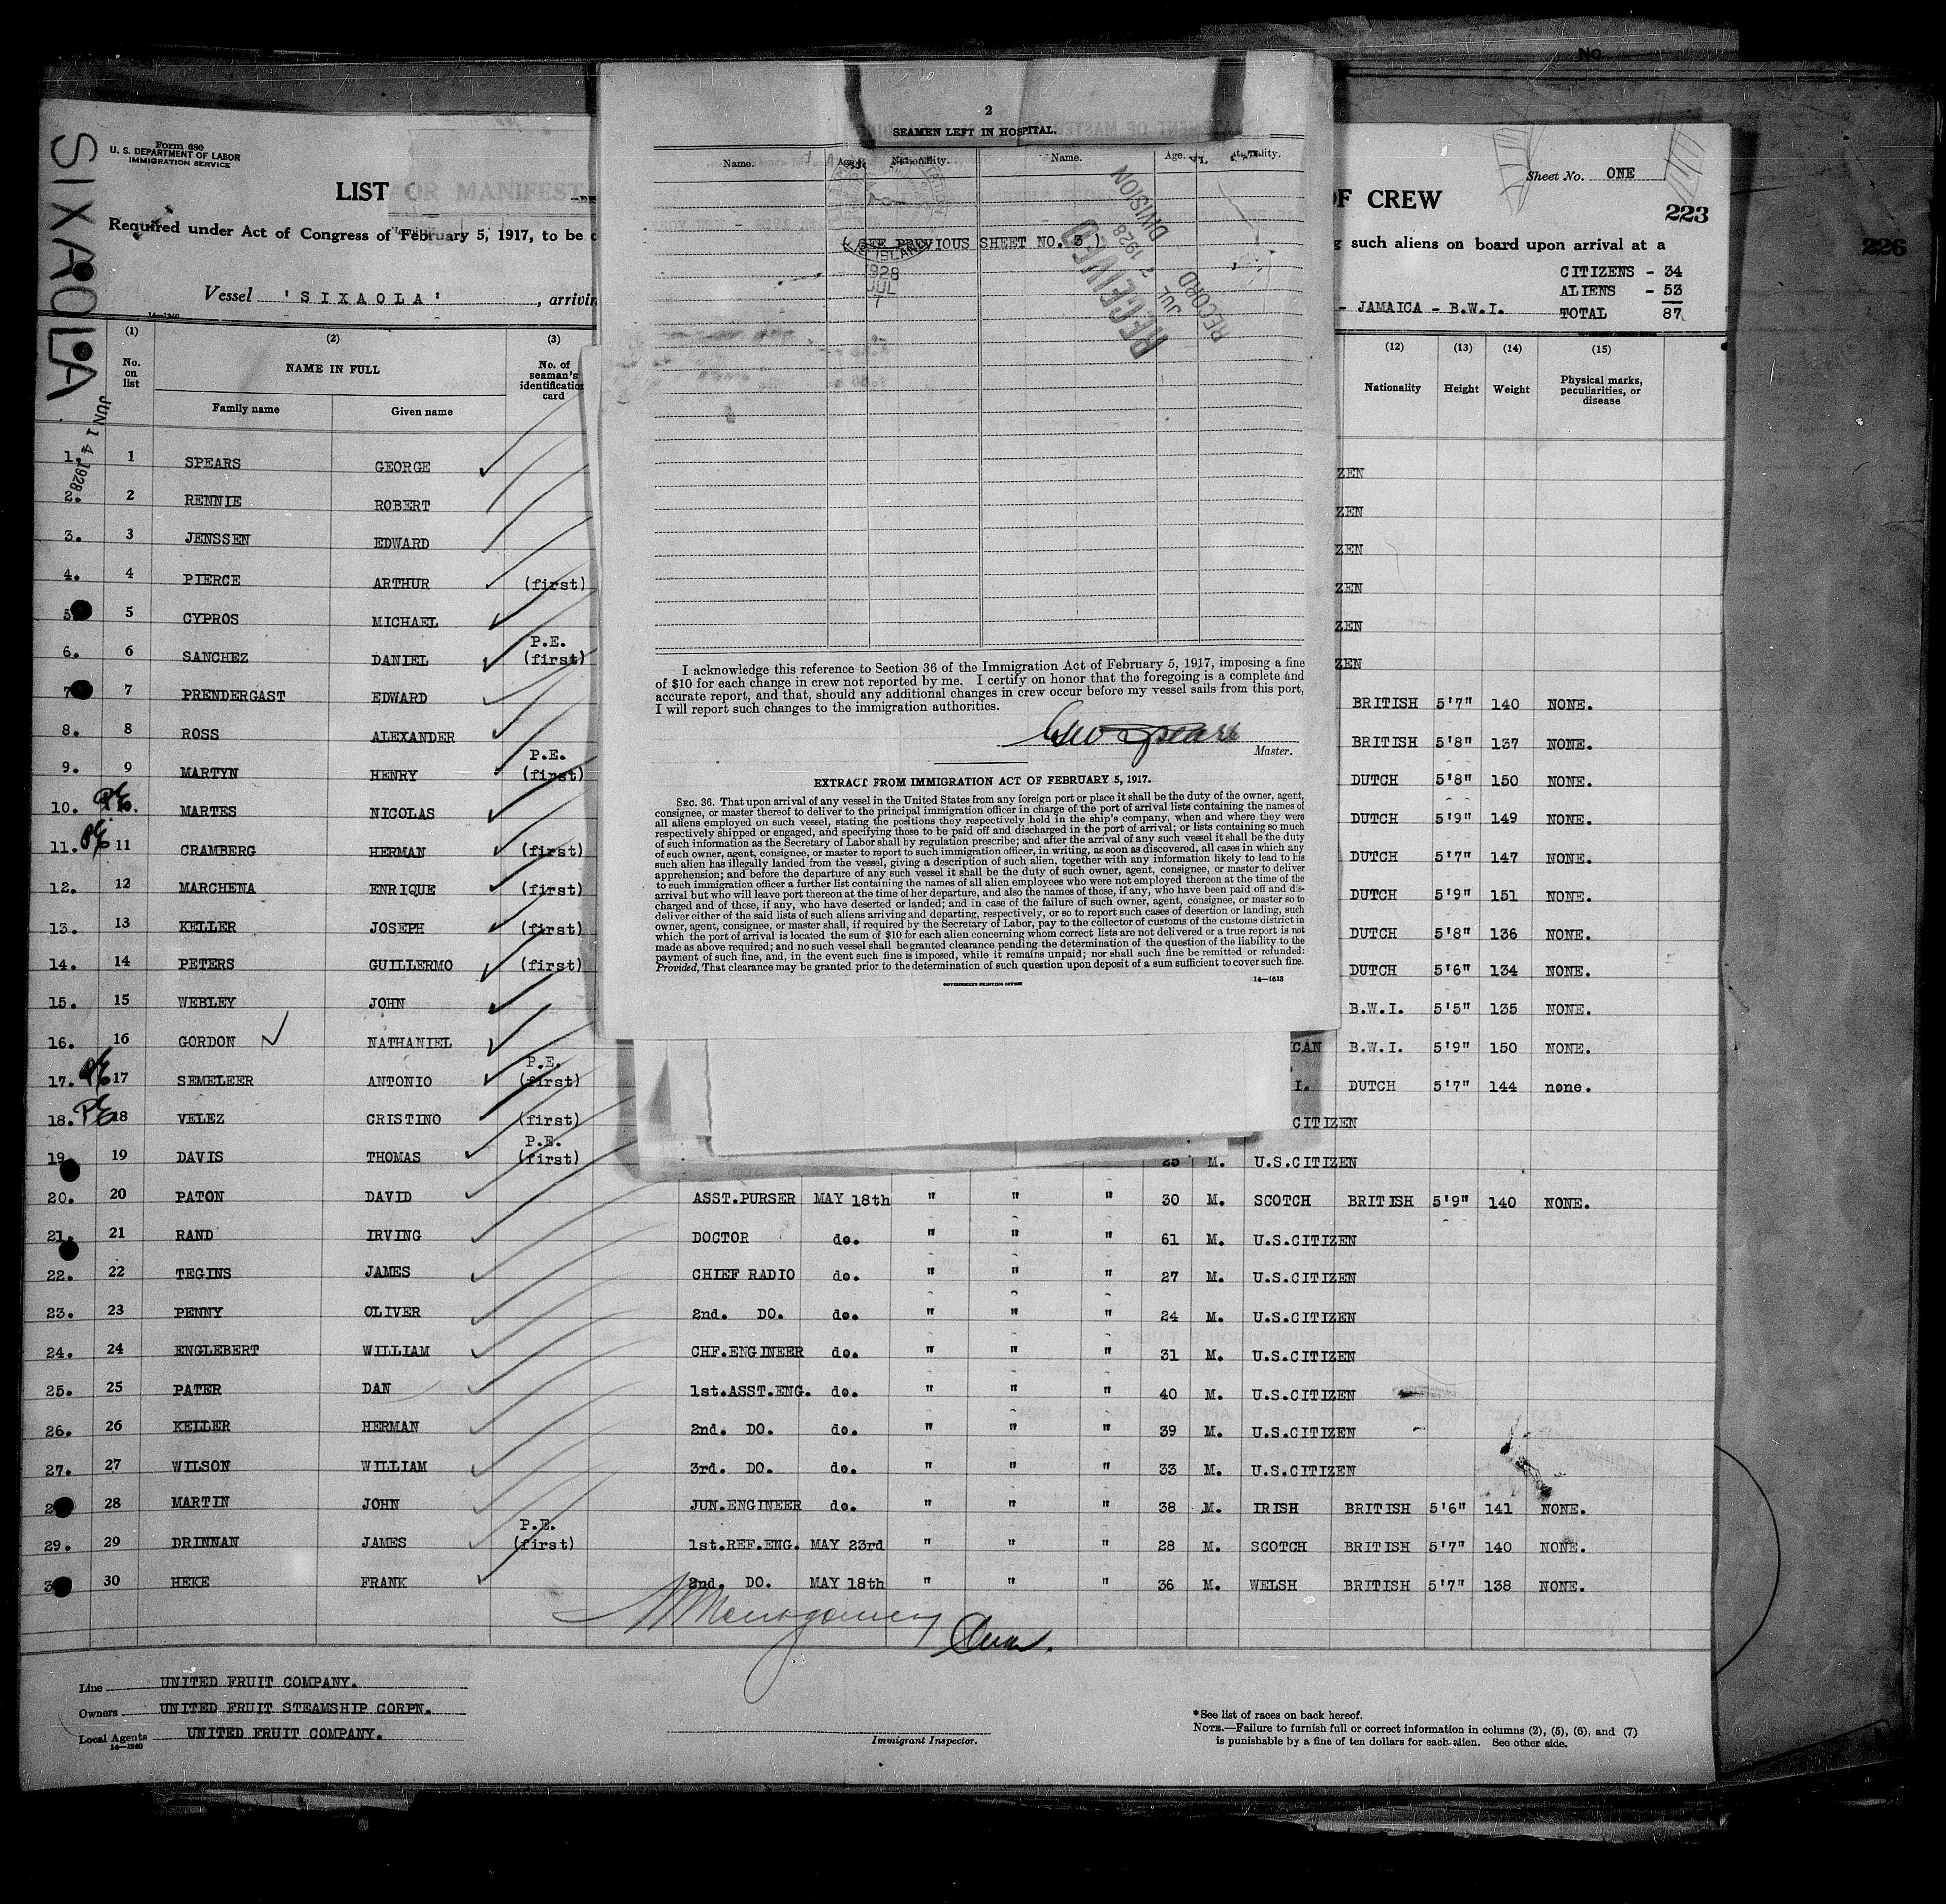 No.
SIXAOLA
JUN 14 1928
Form 680
U. S. DEPARTMENT OF LABOR
IMMIGRATION SERVICE
LIST OR MANIFEST
OF CREW
Sheet No. ONE
223
226
Required under Act of Congress of February 5, 1917, to be
such aliens on board upon arrival at a
CITIZENS - 34
ALIENS - 53
TOTAL 87
Vessel 'SIXAOLA', arrivin
- JAMAICA - B.W.I.
14-1240
(1) (2) (3) (12) (13) (14) (15)
No. on list
NAME IN FULL
Family name Given name
No. of seaman's identification card
Nationality Height Weight Physical marks, peculiarities, or disease
1. 1 SPEARS GEORGE ZEN
2. 2 RENNIE ROBERT ZEN
3. 3 JENSSEN EDWARD ZEN
4. 4 PIERCE ARTHUR (first) ZEN
5 5 CYPROS MICHAEL ZEN
6. 6 SANCHEZ DANIEL P.E. (first) ZEN
7 7 PRENDERGAST EDWARD BRITISH 5'7" 140 NONE.
8. 8 ROSS ALEXANDER BRITISH 5'8" 137 NONE.
9. 9 MARTYN HENRY P.E. (first) DUTCH 5'8" 150 NONE.
10. PE 10. MARTES NICOLAS DUTCH 5'9" 149 NONE.
11. PE 11 CRAMBERG HERMAN (first) DUTCH 5'7" 147 NONE.
12. 12 MARCHENA ENRIQUE (first) DUTCH 5'9" 151 NONE.
13. 13 KELLER JOSEPH (first) DUTCH 5'8" 136 NONE.
14. 14 PETERS GUILLERMO (first) DUTCH 5'6" 134 NONE.
15. 15 WEBLEY JOHN B.W.I. 5'5" 135 NONE.
16. 16 GORDON NATHANIEL CAN B.W.I. 5'9" 150 NONE.
17. PE 17 SEMELEER ANTONIO P.E. (first) I. DUTCH 5'7" 144 none.
18. PE 18 VELEZ CRISTINO (first) CITIZEN
19 19 DAVIS THOMAS P.E. (first) M. U.S.CITIZEN
20. 20 PATON DAVID ASST.PURSER MAY 18th " " " 30 M. SCOTCH BRITISH 5'9" 140 NONE.
21. 21 RAND IRVING DOCTOR do. " " " 61 M. U.S.CITIZEN
22. 22 TEGINS JAMES CHIEF RADIO do. " " " 27 M. U.S.CITIZEN
23. 23 PENNY OLIVER 2nd. DO. do. " " " 24 M. U.S.CITIZEN
24. 24 ENGLEBERT WILLIAM CHF.ENGINEER do. " " " 31 M. U.S.CITIZEN
25. 25 PATER DAN 1st.ASST.ENG. do. " " " 40 M. U.S.CITIZEN
26. 26 KELLER HERMAN 2nd. DO. do. " " " 39 M. U.S.CITIZEN
27. 27 WILSON WILLIAM 3rd. DO. do. " " " 33 M. U.S.CITIZEN
2 28 MARTIN JOHN JUN.ENGINEER do. " " " 38 M. IRISH BRITISH 5'6" 141 NONE.
29. 29 DRINNAN JAMES P.E. (first) 1st.REF.ENG. MAY 23rd " " " 28 M. SCOTCH BRITISH 5'7" 140 NONE.
3 30 HEKE FRANK 2nd. DO. MAY 18th " " " 36 M. WELSH BRITISH 5'7" 138 NONE.
Montgomery
Line UNITED FRUIT COMPANY.
Owners UNITED FRUIT STEAMSHIP CORPN.
Local Agents UNITED FRUIT COMPANY.
14-1240
Immigrant Inspector.
* See list of races on back hereof.
NOTE.—Failure to furnish full or correct information in columns (2), (5), (6), and (7)
is punishable by a fine of ten dollars for each alien. See other side.
2
SEAMEN LEFT IN HOSPITAL.
Name. Age. Nationality. Name. Age. Nationality.
(SEE PREVIOUS SHEET NO. 3)
ISLAND
1928
JUL
7
RECEIVED
JUL 2 1928
RECORD DIVISION
I acknowledge this reference to Section 36 of the Immigration Act of February 5, 1917, imposing a fine
of $10 for each change in crew not reported by me. I certify on honor that the foregoing is a complete and
accurate report, and that, should any additional changes in crew occur before my vessel sails from this port,
I will report such changes to the immigration authorities.
Geo Spears
Master.
EXTRACT FROM IMMIGRATION ACT OF FEBRUARY 5, 1917.
SEC. 36. That upon arrival of any vessel in the United States from any foreign port or place it shall be the duty of the owner, agent,
consignee, or master thereof to deliver to the principal immigration officer in charge of the port of arrival lists containing the names of
all aliens employed on such vessel, stating the positions they respectively hold in the ship's company, when and where they were
respectively shipped or engaged, and specifying those to be paid off and discharged in the port of arrival; or lists containing so much
of such information as the Secretary of Labor shall by regulation prescribe; and after the arrival of any such vessel it shall be the duty
of such owner, agent, consignee, or master to report to such immigration officer, in writing, as soon as discovered, all cases in which any
such alien has illegally landed from the vessel, giving a description of such alien, together with any information likely to lead to his
apprehension; and before the departure of any such vessel it shall be the duty of such owner, agent, consignee, or master to deliver
to such immigration officer a further list containing the names of all alien employees who were not employed thereon at the time of the
arrival but who will leave port thereon at the time of her departure, and also the names of those, if any, who have been paid off and dis-
charged and of those, if any, who have deserted or landed; and in case of the failure of such owner, agent, consignee, or master so to
deliver either of the said lists of such aliens arriving and departing, respectively, or so to report such cases of desertion or landing, such
owner, agent, consignee, or master shall, if required by the Secretary of Labor, pay to the collector of customs of the customs district in
which the port of arrival is located the sum of $10 for each alien concerning whom correct lists are not delivered or a true report is not
made as above required; and no such vessel shall be granted clearance pending the determination of the question of the liability to the
payment of such fine, and, in the event such fine is imposed, while it remains unpaid; nor shall such fine be remitted or refunded:
Provided, That clearance may be granted prior to the determination of such question upon deposit of a sum sufficient to cover such fine.
GOVERNMENT PRINTING OFFICE
14-1613